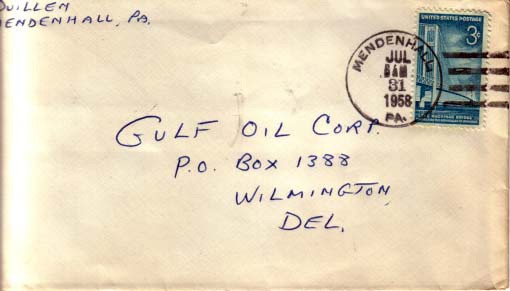 QUILLEN
MENDENHALL, PA.
UNITED STATES POSTAGE
3¢
MENDENHALL
JUL
31
1958
PA.
MACKINAC BRIDGE
GULF OIL CORP.
P.O. BOX 1388
WILMINGTON
DEL.